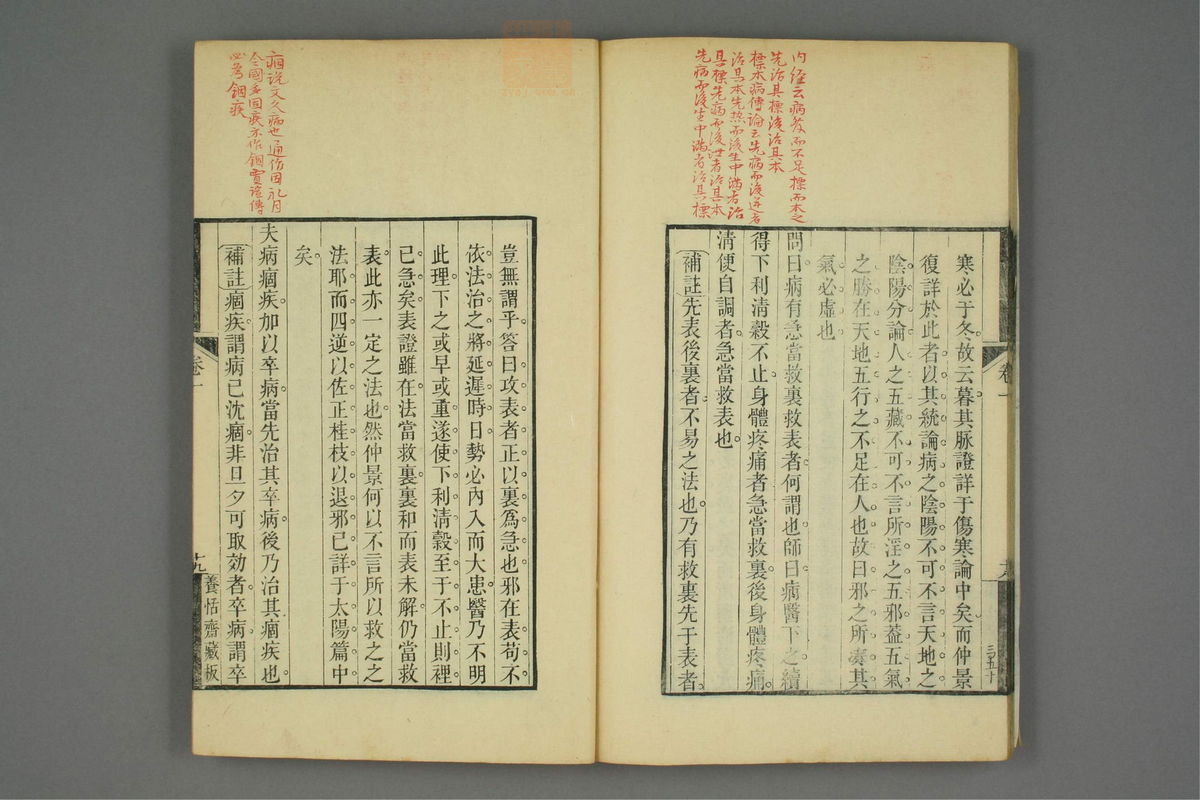 內經云病發而不足標而本之
先治其標後治其本
標本病傳論云先病而後逆者
治其本先熱而後生中滿者治
其標先病而後泄者治其本
先病而後生中滿者治其標
寒必于冬故云暮其脉證詳于傷寒論中矣而仲景
復詳於此者以其統論病之陰陽不可不言天地之
陰陽分論人之五藏不可不言所淫之五邪葢五氣
之勝在天地五行之不足在人也故曰邪之所凑其
氣必虛也
問曰病有急當救裏救表者何謂也師曰病醫下之續
得下利清穀不止身體疼痛者急當救裏後身體疼痛
清便自調者急當救表也
補註先表後裏者不易之法也乃有救裏先于表者
卷一
三五十
痼說文久病也通作固礼月
令國多固疾亦作錮賈誼傳
必為錮疾
豈無謂乎答曰攻表者正以裏爲急也邪在表苟不
依法治之將延遲時日勢必內入而大患醫乃不明
此理下之或早或重遂使下利清穀至于不止則裡
已急矣表證雖在法當救裏裏和而表未解仍當救
表此亦一定之法也然仲景何以不言所以救之之
法耶而四逆以佐正桂枝以退邪已詳于太陽篇中
矣
夫病痼疾加以卒病當先治其卒病後乃治其痼疾也
補註痼疾謂病已沈痼非旦夕可取効者卒病謂卒
卷一
十九
養恬齋藏板